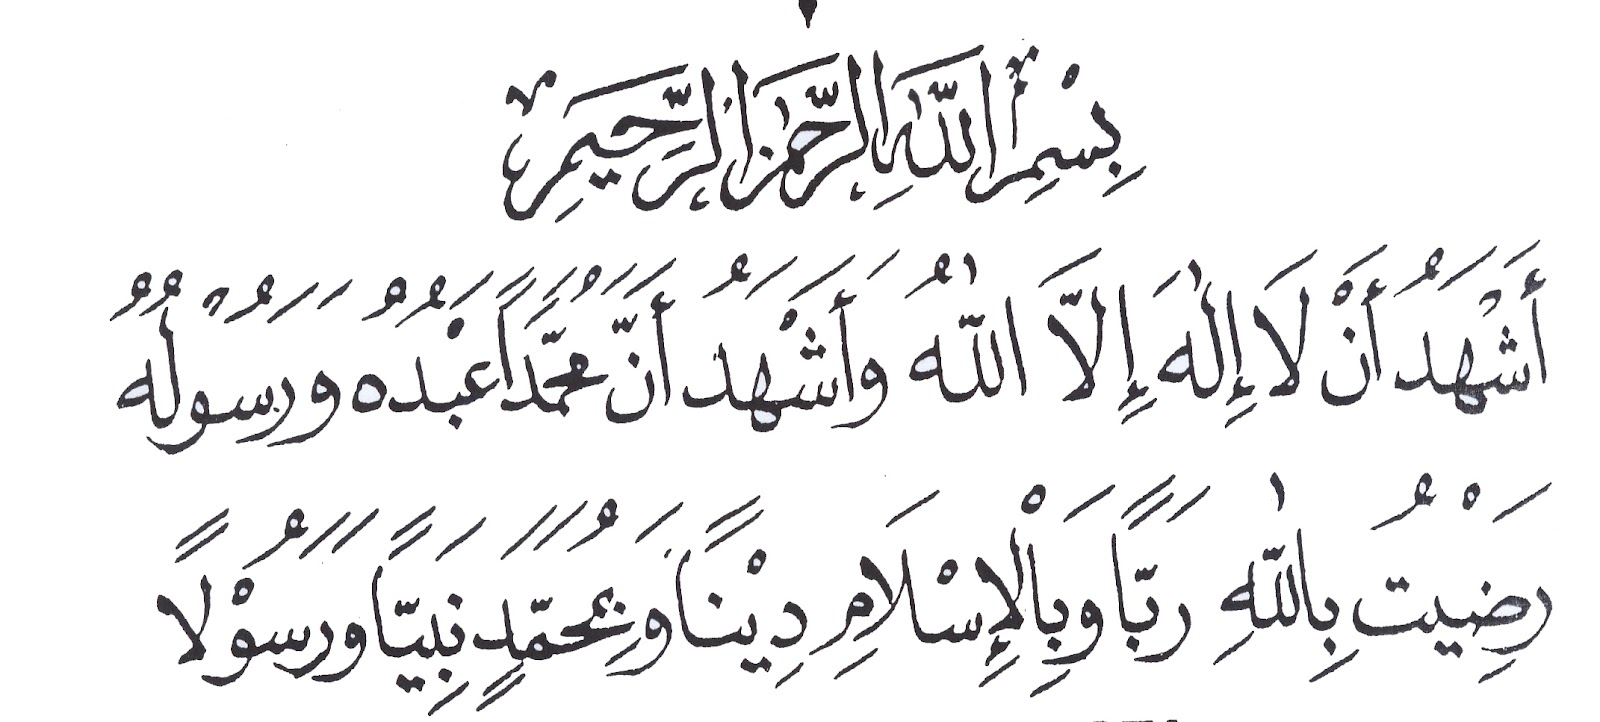 بِسْمِ اللَّهِ الرَّحْمٰنِ الرَّحِيْمِ
أَشْهَدُ أَنْ لَا إِلٰهَ إِلَّا اللّٰهُ وَأَشْهَدُ أَنَّ مُحَمَّدًا عَبْدُهُ وَرَسُولُهُ
رَضِيْتُ بِاللّٰهِ رَبًّا وَبِالْإِسْلَامِ دِيْنًا وَبِمُحَمَّدٍ نَبِيًّا وَرَسُوْلًا